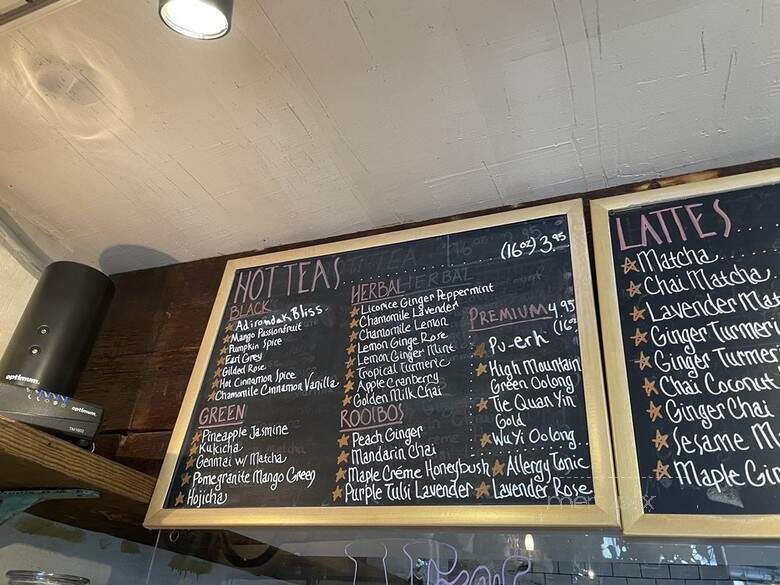 HOT TEAS (16oz) 3.95
BLACK
Adirondak Bliss
Mango Passionfruit
Pumpkin Spice
Earl Grey
Gilded Rose
Hot Cinnamon Spice
Chamomile Cinnamon Vanilla
GREEN
Pineapple Jasmine
Kukicha
Genmai w/ Matcha
Pomegranite Mango Green
Hojicha
HERBAL HERBAL
Licorice Ginger Peppermint
Chamomile Lavender
Chamomile Lemon
Lemon Ginge Rose
Lemon Ginger Mint
Tropical Turmeric
Apple Cranberry
Golden Milk Chai
ROOIBOS
Peach Ginger
Mandarin Chai
Maple Créme Honeybush
Purple Tulsi Lavender
PREMIUM 4.95
(16oz
Pu-erh
High Mountain
Green Oolong
Tie Quan Yin
Gold
Wu Yi Oolong
Allergy Tonic
Lavender Rose
LATTES
Matcha
Chai Matcha
Lavender
Ginger Turmeri
Ginger Turmeri
Chai Coconut
Ginger Chai
Sesame
Maple
optimum.
optimum.